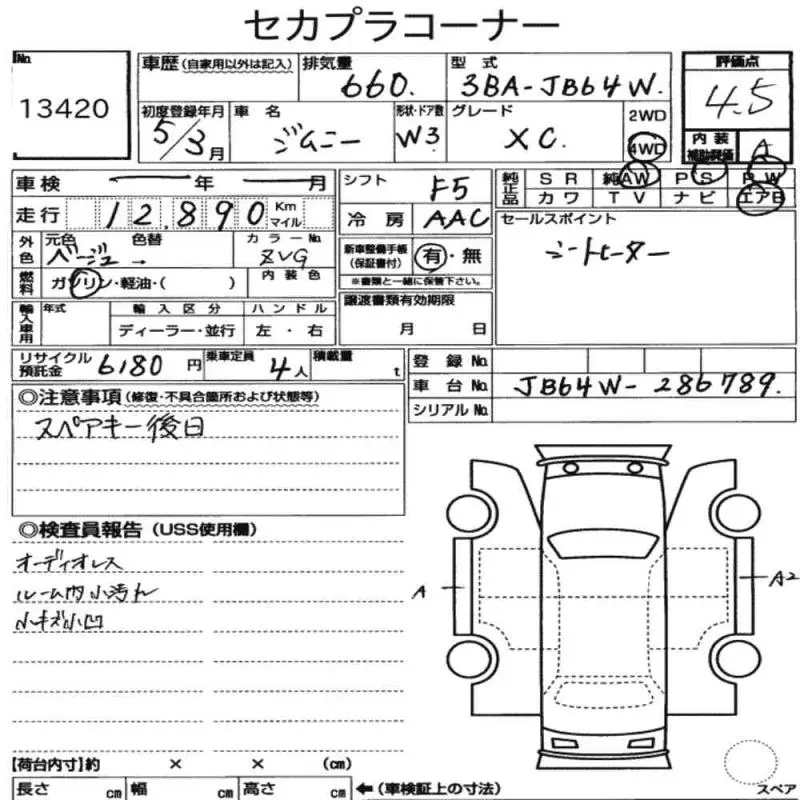 セカプラコーナー
No. 13420
車歴 (自家用以外は記入)
排気量 660.
型式 3BA-JB64W.
評価点 4.5
初度登録年月 5/3月
車名 ジムニー
形状・ドア数 W3
グレード XC.
2WD
4WD
内装補助評価 A
車検 年 月
シフト F5
純正品 SR 純AW PS PW
カワ TV ナビ エアB
走行 12,890 Km マイル
冷房 AAC
セールスポイント
シートヒーター
外色 元色 ベージュ 色替 →
カラーNo. ZVG
新車整備手帳(保証書付) 有・無
※書類と一緒に保管下さい。
燃料 ガソリン・軽油・( )
内装色
輸入車用 年式 輸入区分 ハンドル
ディーラー・並行 左・右
譲渡書類有効期限
月 日
リサイクル預託金 6180円
乗車定員 4人
積載量 t
登録No.
車台No. JB64W-286789.
シリアルNo.
◎注意事項(修復・不具合箇所および状態等)
スペアキー後日
◎検査員報告(USS使用欄)
オーディオレス
ルーム内小汚れ
小キズ小凹
A
A2
【荷台内寸】約 × × (cm)
長さ cm 幅 cm 高さ cm ←(車検証上の寸法)
スペア